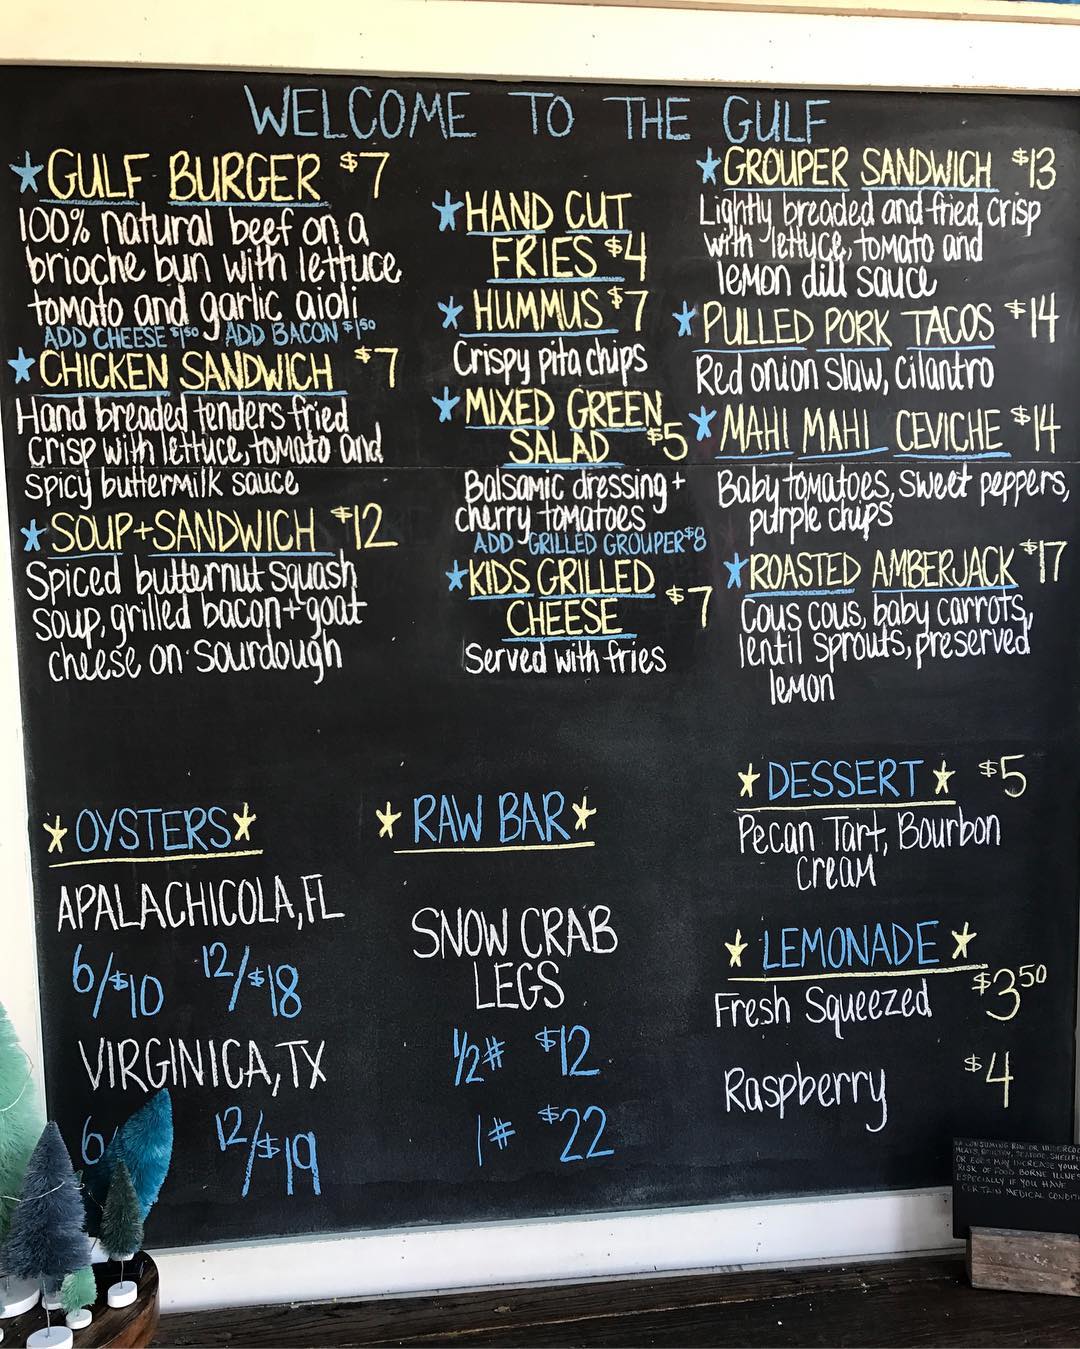 WELCOME TO THE GULF
GULF BURGER $7
100% natural beef on a
brioche bun with lettuce
tomato and garlic aioli
ADD CHEESE $1.50 ADD BACON $1.50
CHICKEN SANDWICH $7
Hand breaded tenders fried
crisp with lettuce, tomato and
spicy buttermilk sauce
SOUP+SANDWICH $12
Spiced butternut squash
soup, grilled bacon + goat
cheese on sourdough
HAND CUT
FRIES $4
HUMMUS $7
Crispy pita chips
MIXED GREEN
SALAD $5
Balsamic dressing +
cherry tomatoes
ADD GRILLED GROUPER $8
KIDS GRILLED
CHEESE $7
Served with fries
GROUPER SANDWICH $13
Lightly breaded and fried crisp
with lettuce, tomato and
lemon dill sauce
PULLED PORK TACOS $14
Red onion slaw, cilantro
MAHI MAHI CEVICHE $14
Baby tomatoes, sweet peppers,
purple chips
ROASTED AMBERJACK $17
Cous cous, baby carrots,
lentil sprouts, preserved
lemon
OYSTERS
APALACHICOLA, FL
6/$10 12/$18
VIRGINICA, TX
6/ 12/$19
RAW BAR
SNOW CRAB
LEGS
1/2# $12
1# $22
DESSERT $5
Pecan Tart, Bourbon
Cream
LEMONADE
Fresh Squeezed $3.50
Raspberry $4
CONSUMING RAW OR
MEATS, POULTRY, SEAFOOD,
OR EGGS MAY INCREASE YOUR
RISK OF FOOD BORNE
ESPECIALLY IF YOU HAVE
CERTAIN MEDICAL